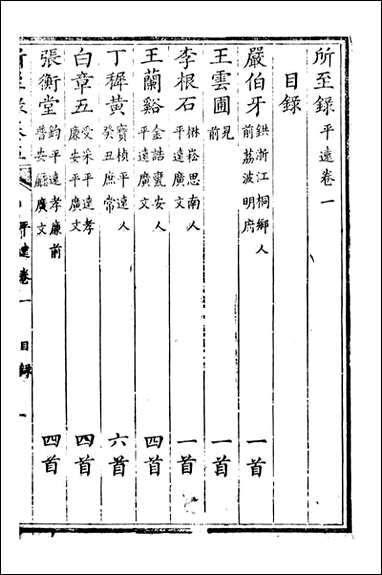 所至錄平遠卷一
目錄
嚴伯牙 鉷浙江桐鄉人前荔波明府 一首
王雲圃 見前 一首
李根石 崧思南人平遠廣文 一首
王蘭谿 金誥甕安人平遠廣文 四首
丁穉黃 寶楨平遠人癸丑庶常 六首
白章五 受采平遠孝廉安平廣文 四首
張衡堂 鈞平遠孝廉前普安廳廣文 四首
平遠卷一 目錄 一